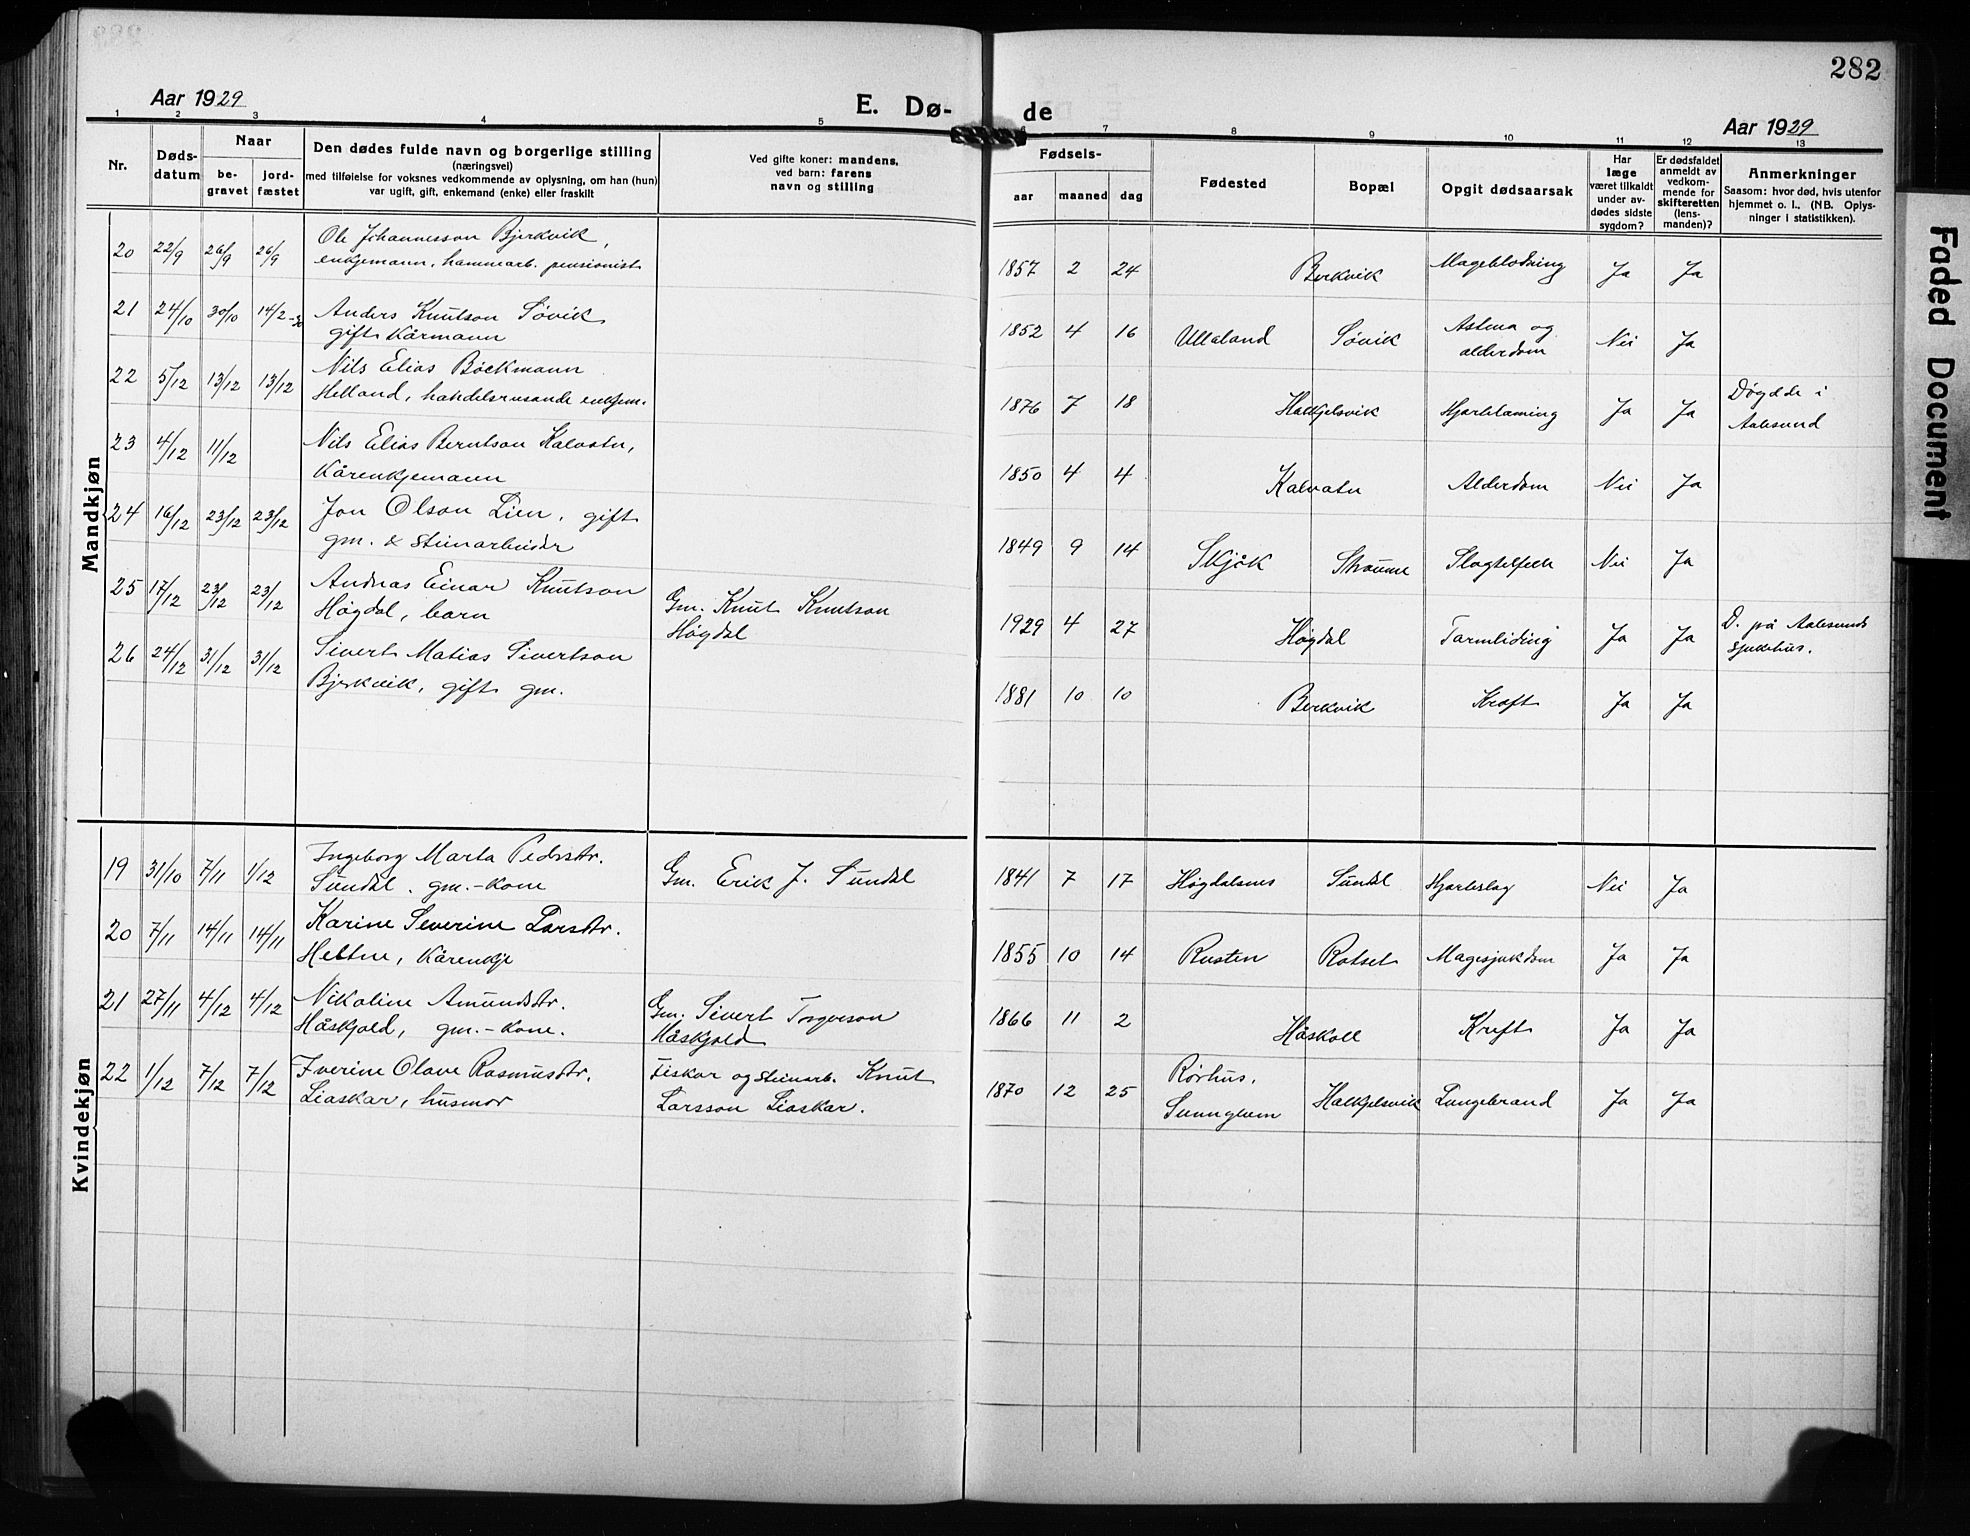 282
Aar 1929
E. Dø-
de
Aar 1929
1 2 3 4 5 6 7 8 9 10 11 12 13
Nr.
Døds-
datum
Naar
be-
gravet
jord-
fæstet
Den dødes fulde navn og borgerlige stilling
(næringsvei)
med tilføielse for voksnes vedkommende av oplysning, om han (hun)
var ugift, gift, enkemand (enke) eller fraskilt
Ved gifte koner: mandens,
ved barn: farens
navn og stilling
Fødsels-
aar maaned dag
Fødested
Bopæl
Opgit dødsaarsak
Har
læge
været tilkaldt
under av-
dødes sidste
sygdom?
Er dødsfaldet
anmeldt av
vedkom-
mende for
skifteretten
(lens-
manden)?
Anmerkninger
Saasom: hvor død, hvis utenfor
hjemmet o. l., (NB. Oplys-
ninger i statistikken).
Mandkjøn
20 22/9 26/9 26/9 Ole Johannesson Bjerkvik,
enkjemann, hammarb. pensionist
1857 2 24 Berkvik Mageblødning Ja Ja
21 24/10 30/10 14/2-30 Anders Knutson Søvik
gift Kårmann
1852 4 16 Ullaland Søvik Astma og
alderdom Nei Ja
22 5/12 13/12 13/12 Nils Elias Böckmann
Helland, handelsreisande enkjem.
1876 7 18 Halkjelsvik Hjartelaming Ja Ja Døydde i
Aalesund
23 4/12 11/12 Nils Elias Berntson Kalvatn,
Kårenkjemann
1850 4 4 Kalvatn Alderdom Nei Ja
24 16/12 23/12 23/12 Jon Olson Lien, gift
gm. & steinarbeider
1849 9 14 Skjåk Straume Slagtilfelle Nei Ja
25 17/12 23/12 23/12 Andreas Einar Knutson
Høgdal, barn
Gm. Knut Knutson
Høgdal
1929 4 27 Høgdal Tarmliding Ja Ja D. på Aalesunds
sjukehus.
26 24/12 31/12 31/12 Sivert Matias Sivertson
Bjerkvik, gift gm.
1881 10 10 Berkvik Kræft Ja Ja
Kvindekjøn
19 31/10 7/11 1/12 Ingeborg Marta Pedersdtr.
Sundal. gm.-kone
Gm. Erik J. Sundal
1841 7 17 Høgdalsnes Sundal Hjarteslag Nei Ja
20 7/11 14/11 14/11 Karine Severine Larsdtr.
Heltne, Kårenkje
1855 10 14 Rusten Rotset Magesjukdom Ja Ja
21 27/11 4/12 4/12 Nikoline Amundsdtr.
Håskjold, gm.-kone.
Gm. Sivert Torgerson
Håskjold
1866 11 2 Håskoll Kreft Ja Ja
22 1/12 7/12 7/12 Iverine Olave Rasmusdtr.
Liaskar, husmor
Fiskar og steinarb. Knut
Larsson Liaskar.
1870 12 25 Rørhus,
Sunnylven Halkjelsvik Lungebrand Ja Ja
Faded Document